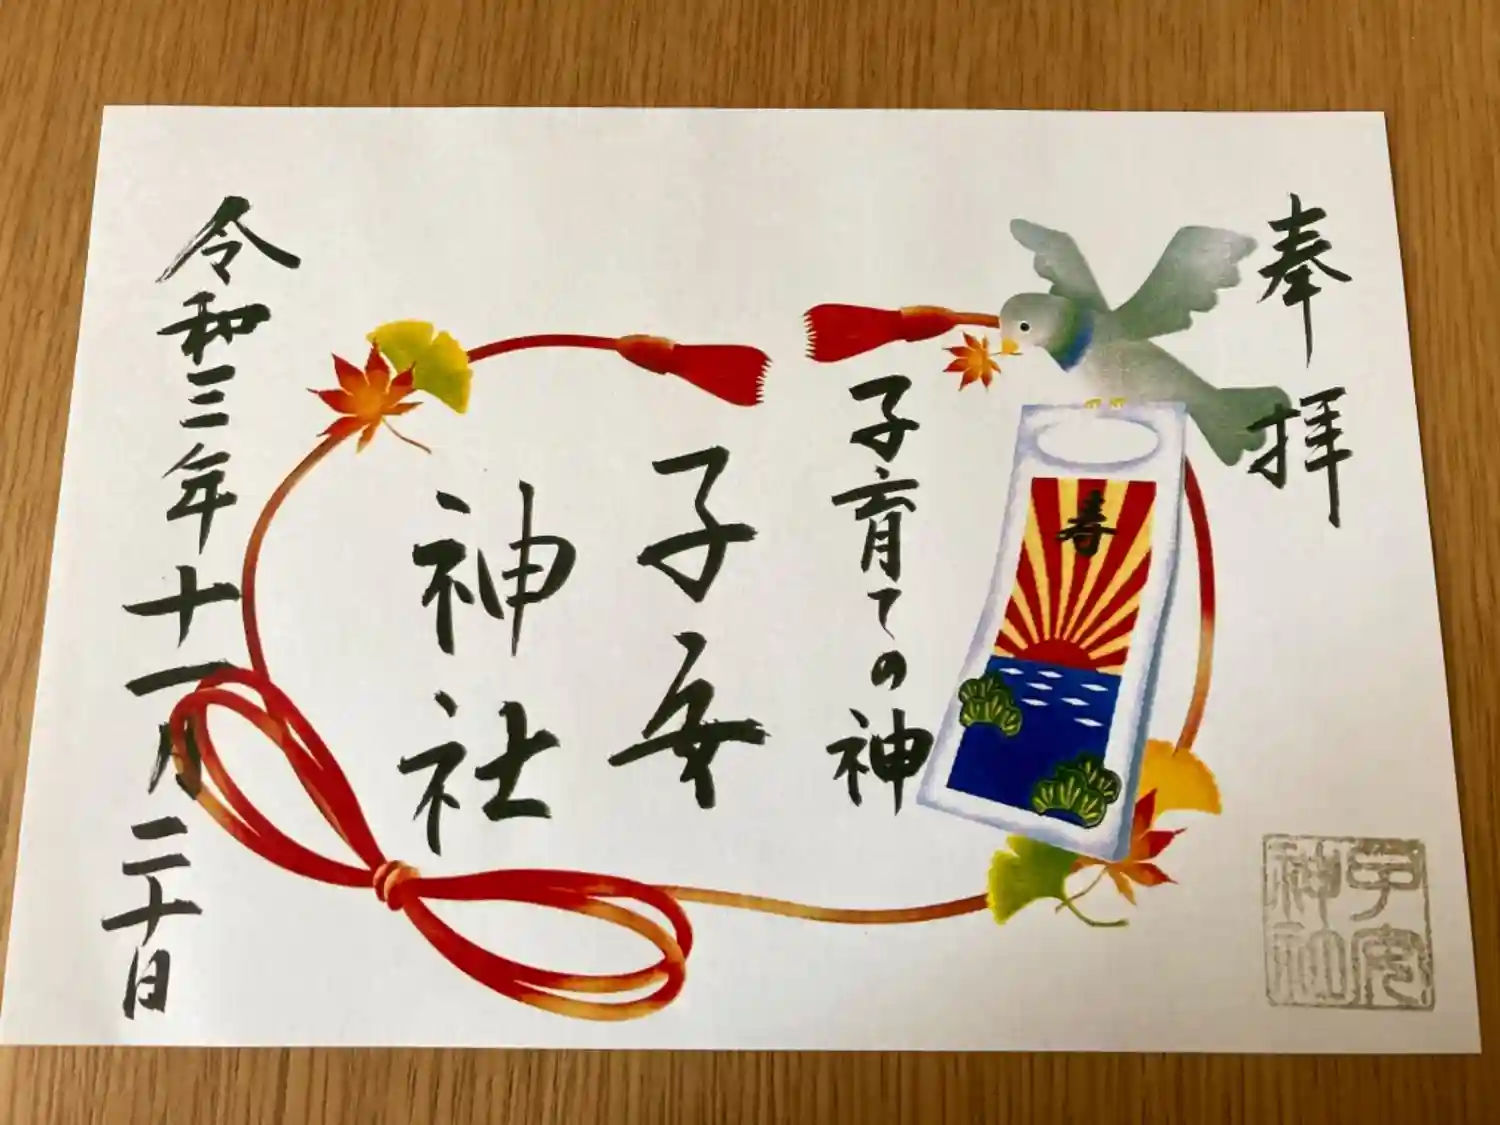 奉拝
寿
子育ての神
子安
神社
令和三年十一月二十日
子安
神社